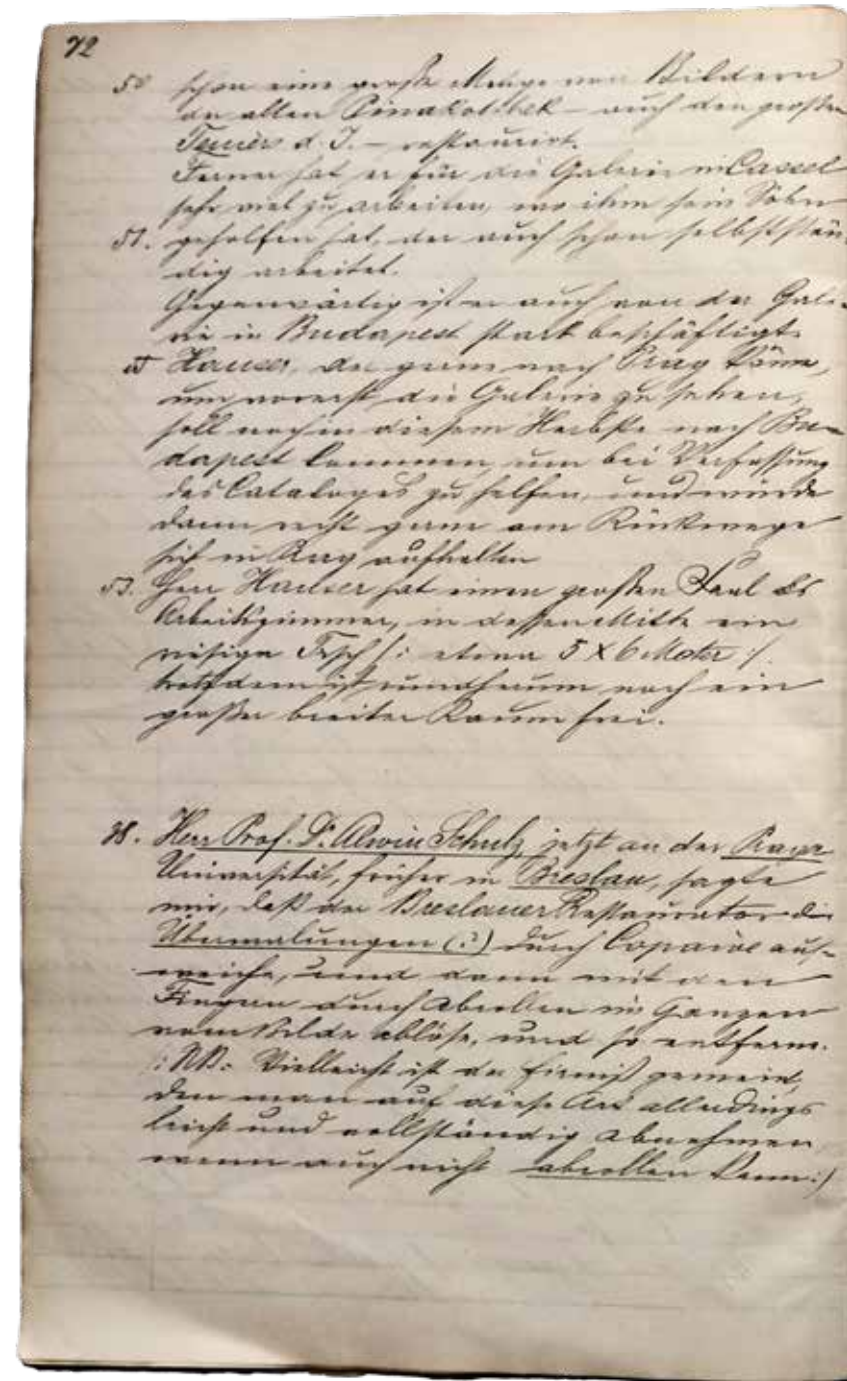 72
50 schon eine große Menge von Bildern
der alten Pinakothek – auch den großen
Teniers d. J. – restaurirt.
Ferner hat er für die Galerie in Cassel
sehr viel zu arbeiten, wo ihm sein Sohn
51. geholfen hat, der auch schon selbststän-
dig arbeitet.
Gegenwärtig ist er auch von der Gale-
rie in Budapest stark beschäftigt.
Hauser, der gerne nach Prag käme,
um vorerst die Galerie zu sehen,
soll noch in diesem Herbste nach Bu-
dapest kommen, um bei Verfassung
des Cataloges zu helfen, und würde
dann recht gerne am Rückwege
sich in Prag aufhalten
53. Herr Hauser hat einen großen Saal als
Arbeitszimmer, in dessen Mitte ein
riesiger Tisch /: etwa 5 X 6 Meter :/
trotzdem ist rundherum noch ein
großer breiter Raum frei.
38. Herr Prof. Dr. Alwin Schulz, jetzt an der Prager
Universität, früher in Breslau, sagte
mir, daß der Breslauer Restaurator die
Übermalungen (?) durch Copaive auf-
weiche, und dann mit den
Fingern durch Abrollen im Ganzen
vom Bilde ablöse, und so entferne.
/: NB. Vielleicht ist der Firniß gemeint,
den man auf diese Art allerdings
leicht und vollständig abnehmen
wenn auch nicht abrollen kann :/